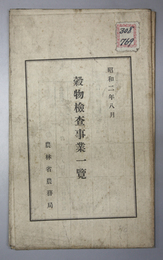 昭和二年八月
穀物檢査事業一覽
農林省農務局
308
769